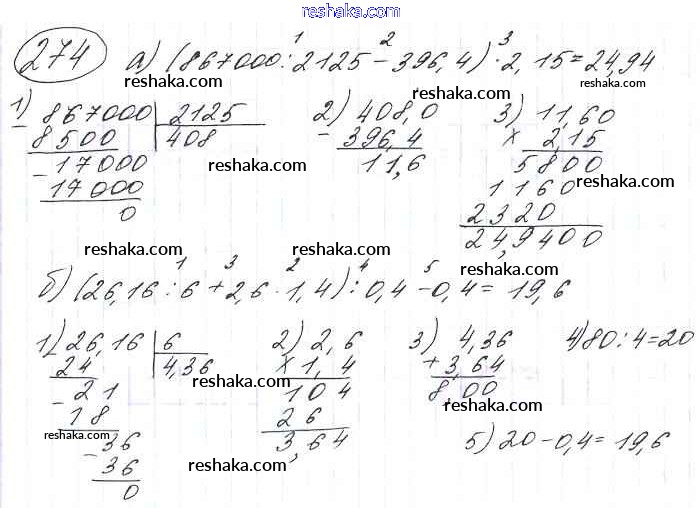 reshaka.com
274 а) (867000 : 2125 − 396,4) · 2,15 = 24,94
1 2 3
reshaka.com reshaka.com
1) 867000 | 2125
− 8500 | 408
− 17000
17000
0
reshaka.com
2) 408,0
− 396,4
11,6
3) 11,60
× 2,15
5800
1160
2320
24,9400
reshaka.com
reshaka.com reshaka.com
б) (26,16 : 6 + 2,6 · 1,4) : 0,4 − 0,4 = 19,6
1 3 2 4 5
1) 26,16 | 6
24 | 4,36
− 21
18
− 36
36
0
reshaka.com
reshaka.com
reshaka.com
2) 2,6
× 1,4
104
26
3,64
reshaka.com
3) 4,36
+ 3,64
8,00
reshaka.com
4) 80 : 4 = 20
5) 20 − 0,4 = 19,6
reshaka.com
reshaka.com